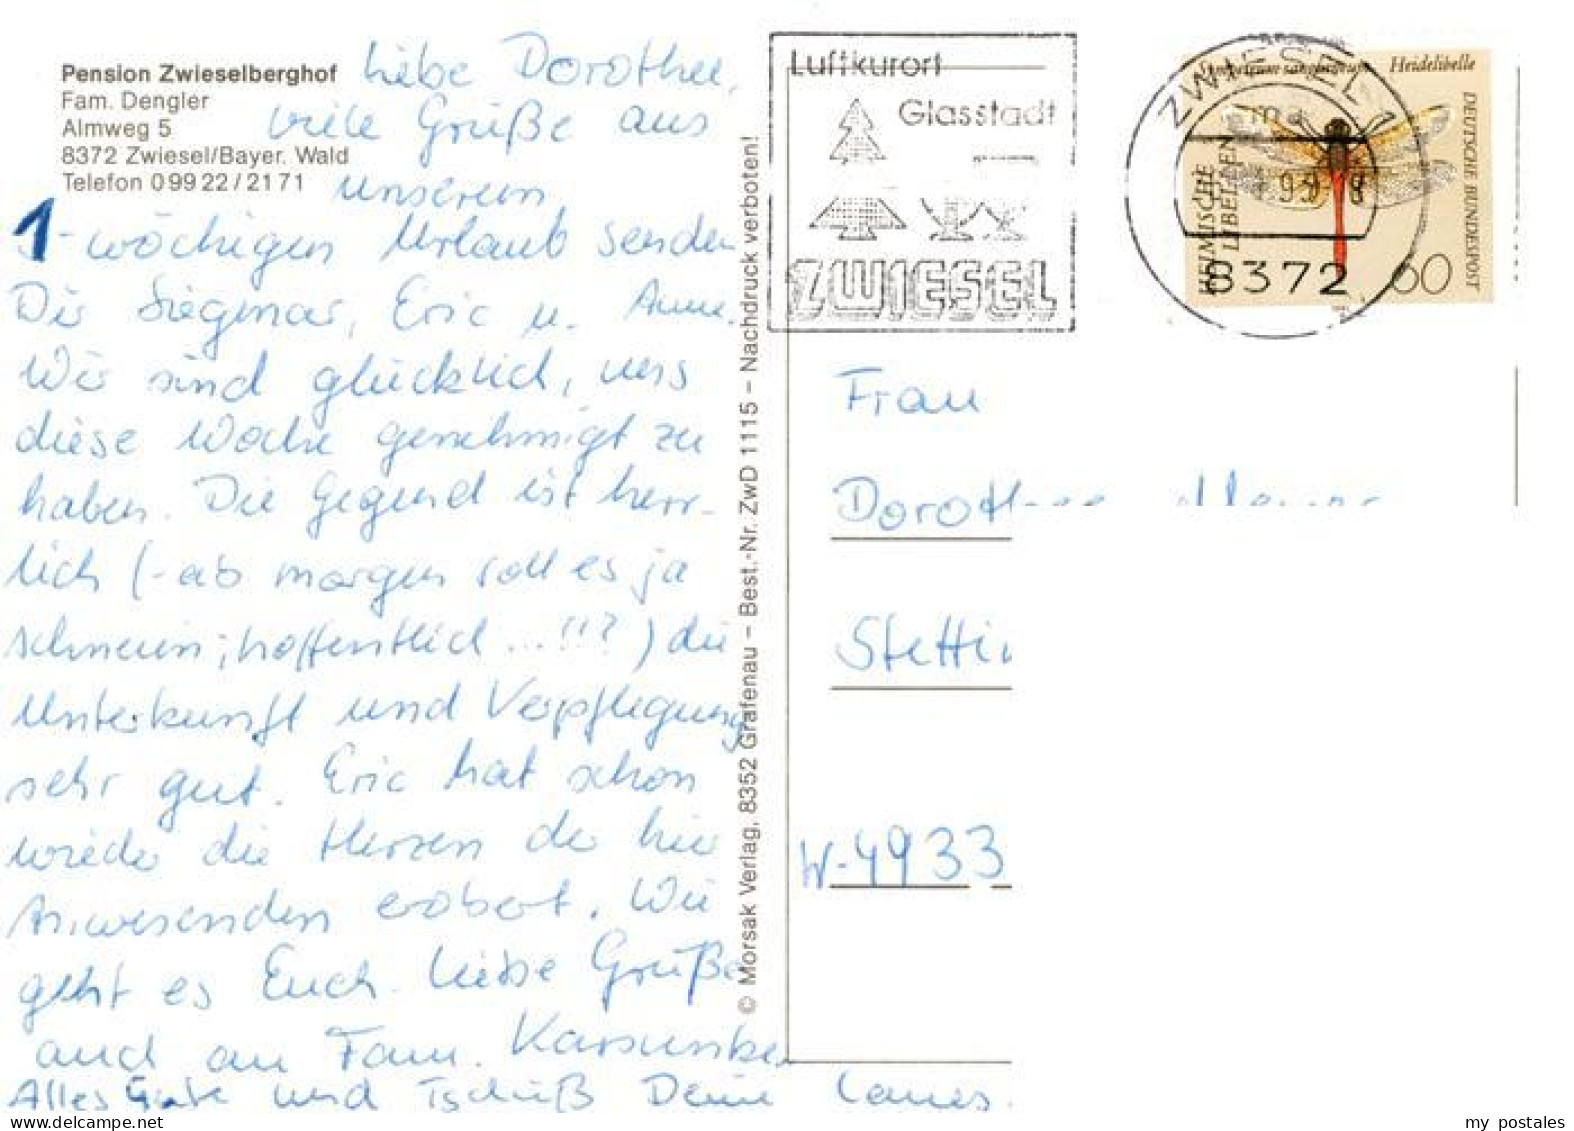 Pension Zwieselberghof
Fam. Dengler
Almweg 5
8372 Zwiesel/Bayer. Wald
Telefon 0 99 22 / 21 71
Liebe Dorothee,
viele Grüße aus
unserem
1-wöchigen Urlaub senden
Dir Siegmar, Eric u. Anne.
Wir sind glücklich, uns
diese Woche genehmigt zu
haben. Die Gegend ist herr-
lich (-ab morgen soll es ja
schneien; hoffentlich ...!!?) die
Unterkunft und Verpflegung
sehr gut. Eric hat schon
wieder die Herzen der hier
Anwesenden erobert. Wie
geht es Euch. Liebe Grüße
auch an Fam. Karsunke
Alles Gute und Tschüß Deine
© Morsak Verlag, 8352 Grafenau – Best.-Nr. ZwD 1115 – Nachdruck verboten!
Luftkurort
Glasstadt
ZWIESEL
ZWIESEL
8372
Heidelibelle
HEIMISCHE
LIBELLEN
DEUTSCHE BUNDESPOST
60
Frau
Dorothee
W-4933
my postales
delcampe.net